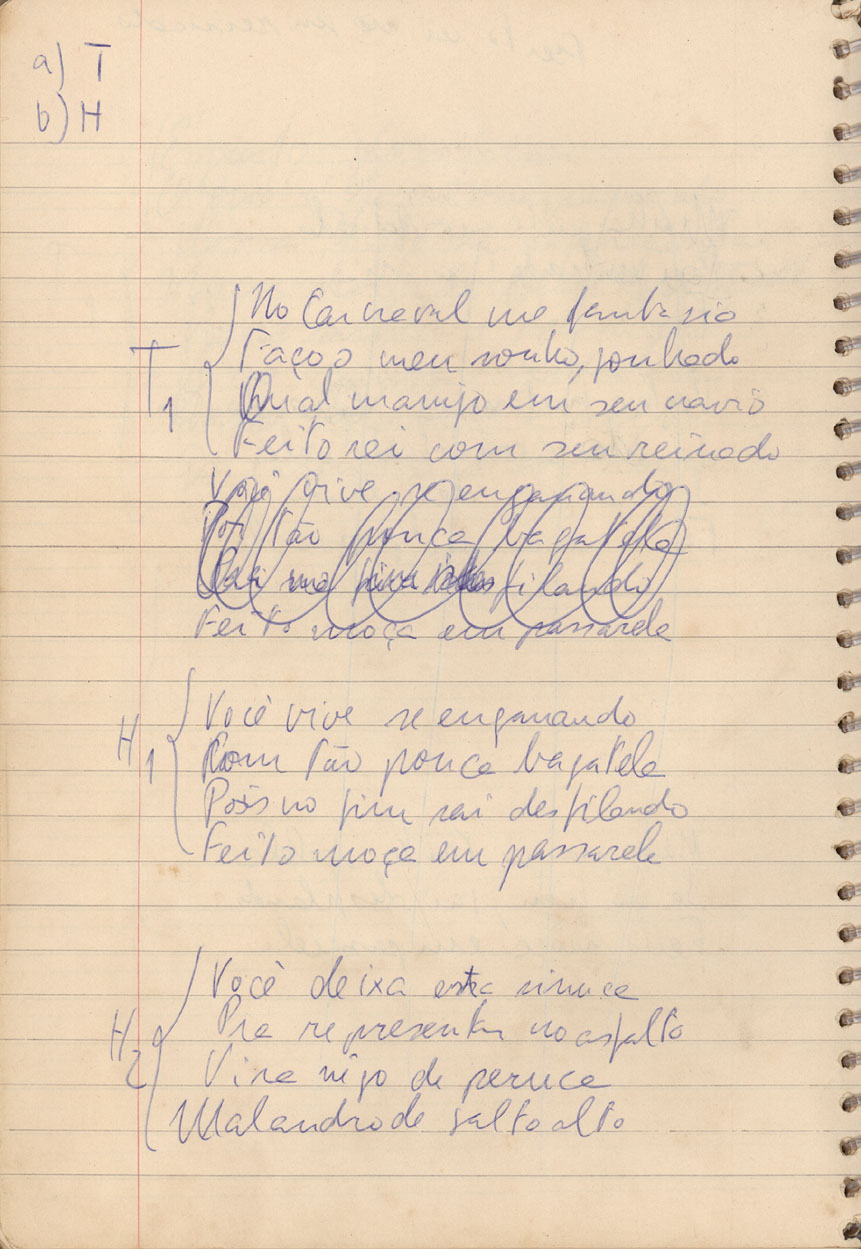 a) T
b) H
T1
No Carnaval me fantasio
Faço o meu sonho, sonhado
Qual marujo em seu navio
Feito rei com seu reinado
Você vive se enganando
Por tão pouca bagatela
desfilando
Feito moça em passarela
H1
Você vive se enganando
Com tão pouca bagatela
Pois no fim sai desfilando
Feito moça em passarela
H2
Você deixa esta sinuca
Pra representar no asfalto
Vira nego de peruca
Malandro de salto alto